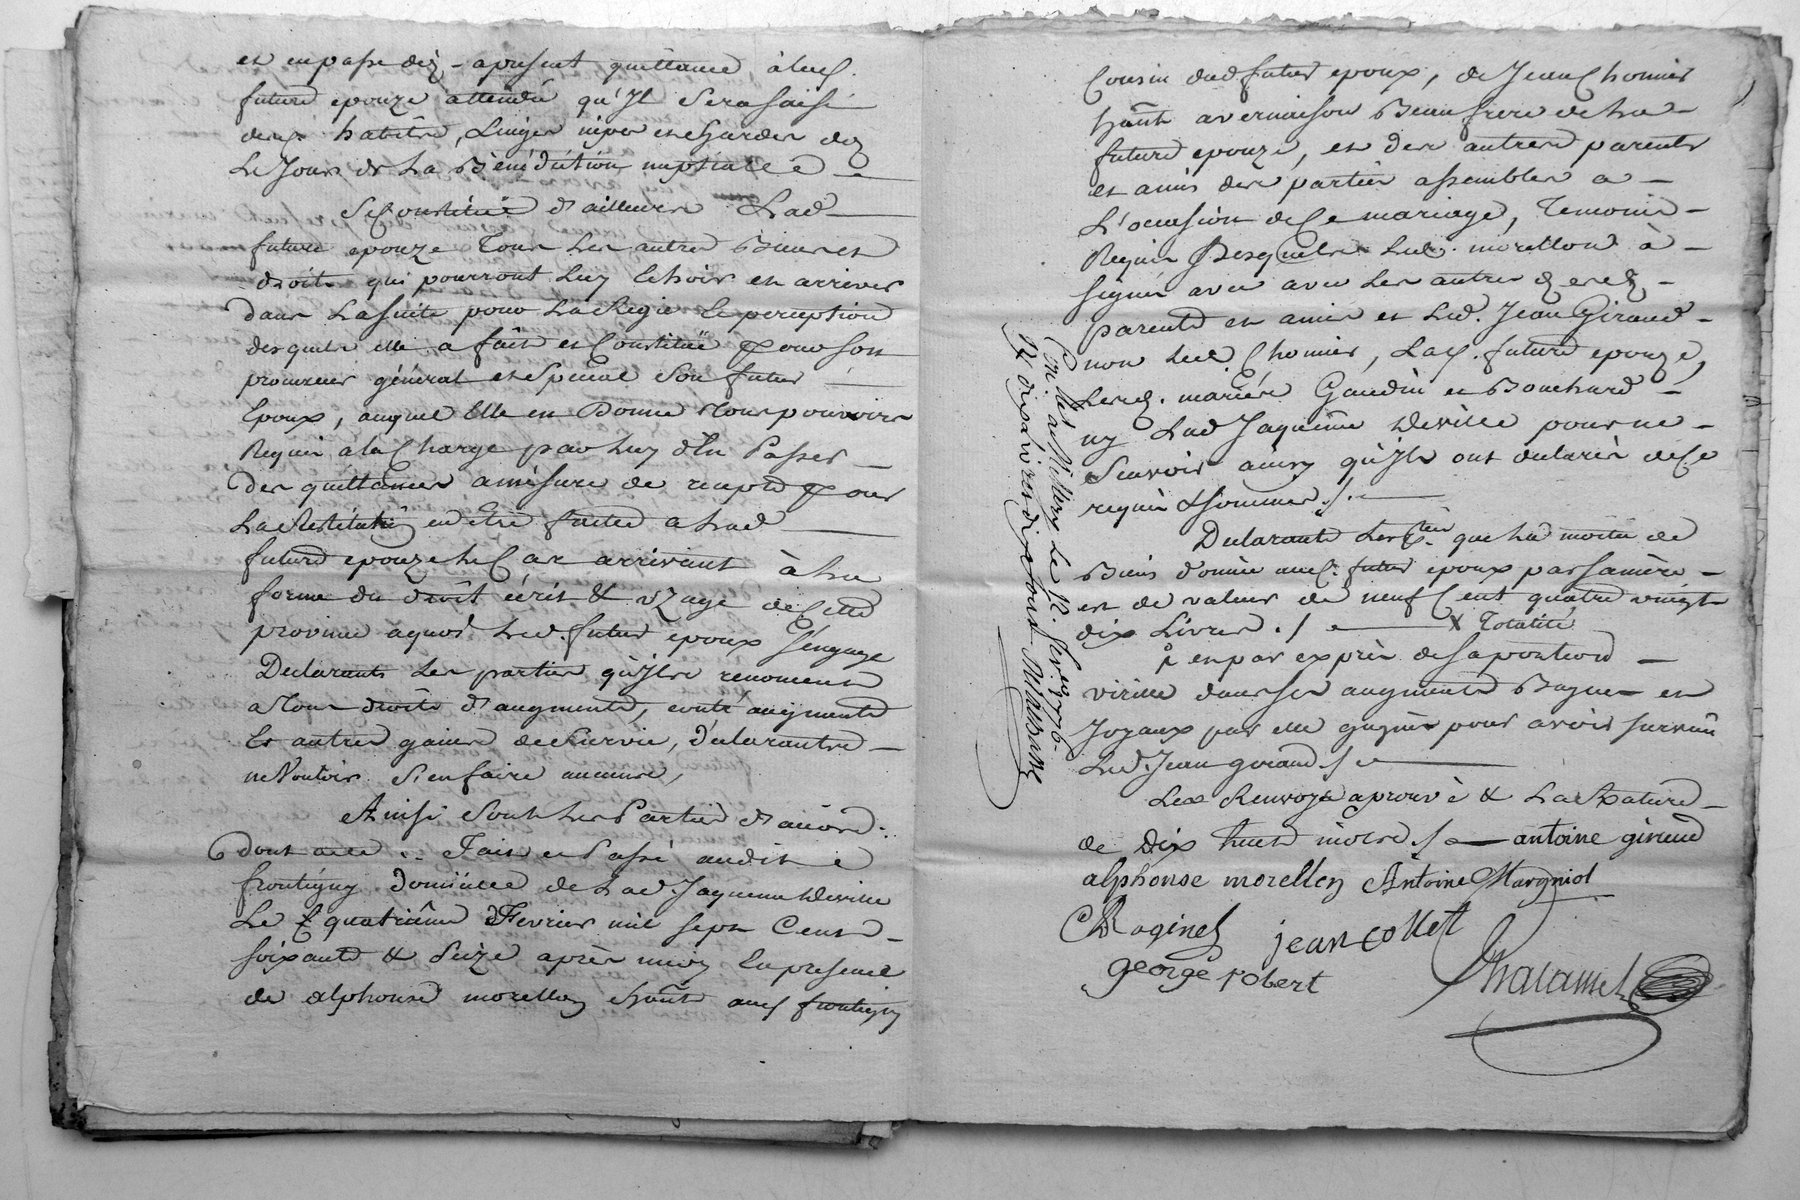 et en passe dez apresent quittance à lad.
future epouze attendu qu'Jl Sera saisi
desd. habits, Linges nipes et hardes dez
Le Jour de La Bénédiction nuptialle
Se Constitüe d'ailleurs Lad
future epouze Tous Les autres Biens et
droits qui pourront Luy Echoir et arriver
dans La suite pour La Régie Et perception
desquels elle a fait et Constitüé pour son
procureur général et Spécial Son futur
Epoux, auquel Elle en Donne Tous pouvoirs
Requis a la Charge par Luy d'En Passer
Des quittances amésure de recepte pour
La Restitution en Etre faite a Lad
future epouze Le Cas arrivant à La
forme du droit écrit & vzage de Cette
province aquoi Led. futur epoux s'engage
Declarants Les parties qu'Jls renoncent
a Tous droits d'augments, contr'augments
Et autres gains de Survie, déclarants
ne Vouloir S'en faire aucuns,
Ainsi Sont Les Parties D'acord.
dont acte .. Fait et Passé audit
frontigny domicile de Lad. Jaqueme Deville
Le quatrième Fevrier mil sept Cent
soixante & Seize après midy En presence
de alphonse morellon hânt aud frontigny
Cousin dud futur epoux, de Jean Chomier
hânt a vernaison Beau frere de La
future epouze, et des autres parents
et amis des parties assemblés a
L'ocasion de Ce mariage, Temoins
Requis Desquels Led. morellon à
signé avec avec Les autres
parents et amis et Led. Jean Giraud
non Led. Chomier, Lad. future epouze,
Lesd. mariés Gaudin et Bouchard
ny Lad Jaqueme Deville pour ne
Scavoir ainsy qu'Jls ont declarés de Ce
requis & sommés ./.
Declarants Lesd. que La moitié de
Biens donnée aud. futur epoux par sa mère
est de valeur de neuf Cent quatre vingt
dix Livres ./. x Totalité
et en par exprès de sa portion
virille dans Ses augments Bagues et
Joyaux par elle gagnés pour avoir survécû
Led. Jean giraud ./.
Les Renvoys aprouvé & La Rature
de Dix huit mots ./. antoine giraud
alphonse morellon Antoine Margniol
C Raginel jean collet
george robert Chalamel
Con.lé à St. Mury Le 12. fevrier 1776.
R. dix Livres dix sous